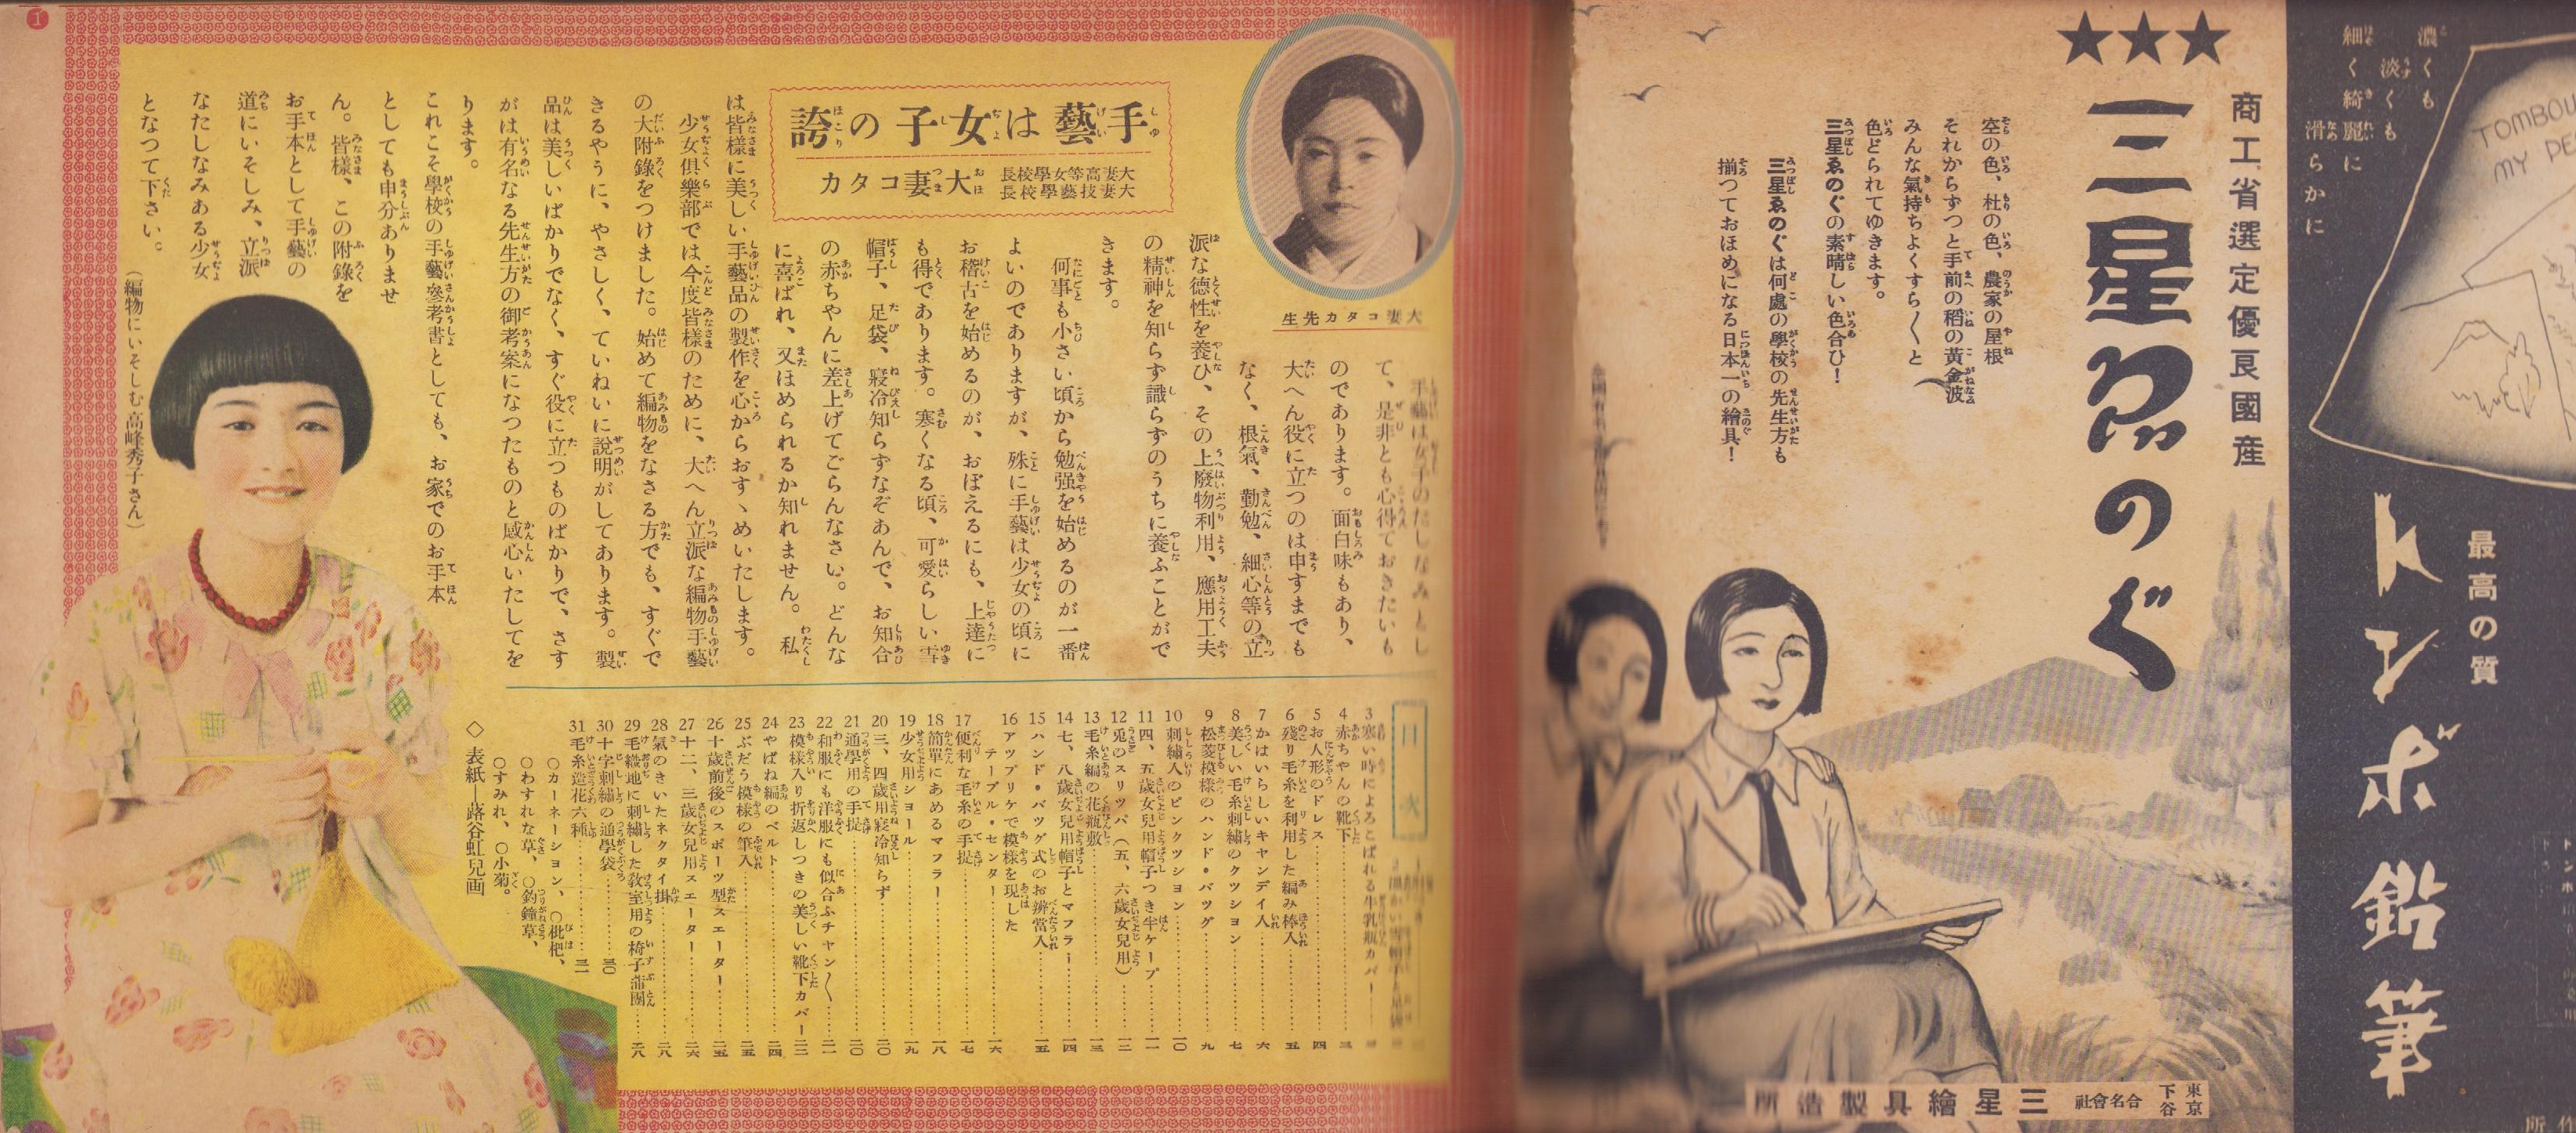 濃くも
淡くも
細く綺麗に
滑らかに
TOMBOW
MY PE
最高の質
トンボ鉛筆
★★★
商工省選定優良國産
三星ゑのぐ
空の色、杜の色、農家の屋根
それからずつと手前の稻の黄金波
みんな氣持ちよくすら〱と
色どられてゆきます。
三星ゑのぐの素晴しい色合ひ!
三星ゑのぐは何處の學校の先生方も
揃つておほめになる日本一の繪具!
東京下谷
合名會社
三星繪具製造所
大妻コタカ先生
手藝は女子の誇
大妻高等女學校長
大妻技藝學校長
大妻コタカ
手藝は女子のたしなみとし
て、是非とも心得ておきたいも
のであります。面白味もあり、
大へん役に立つのは申すまでも
なく、根氣、勤勉、細心等の立
派な德性を養ひ、その上廢物利用、應用工夫
の精神を知らず識らずのうちに養ふことがで
きます。
何事も小さい頃から勉强を始めるのが一番
よいのでありますが、殊に手藝は少女の頃に
お稽古を始めるのが、おぼえるにも、上達に
も得であります。寒くなる頃、可愛らしい雪
帽子、足袋、寢冷知らずなぞあんで、お知合
の赤ちやんに差上げてごらんなさい。どんな
に喜ばれ、又ほめられるか知れません。私
は皆樣に美しい手藝品の製作を心からおすゝめいたします。
少女俱樂部では今度皆樣のために、大へん立派な編物手藝
の大附錄をつけました。始めて編物をなさる方でも、すぐで
きるやうに、やさしく、ていねいに說明がしてあります。製
品は美しいばかりでなく、すぐ役に立つものばかりで、さす
がは有名なる先生方の御考案になつたものと感心いたしてを
ります。
これこそ學校の手藝參考書としても、お家でのお手本
としても申分ありませ
ん。皆樣、この附錄を
お手本として手藝の
道にいそしみ、立派
なたしなみある少女
となつて下さい。
(編物にいそしむ高峰秀子さん)
目次
3 寒い時によろこばれる牛乳瓶カバー
4 赤ちやんの靴下……三
5 お人形のドレス……四
6 殘り毛糸を利用した編み棒入……五
7 かはいらしいキヤンデイ入……六
8 美しい毛糸刺繡のクツション……七
9 松菱模樣のハンド・バツグ……九
10 刺繡入のピンクツション……一〇
11 四、五歲女兒用帽子つき半ケープ……一一
12 兎のスリツパ(五、六歲女兒用)……一二
13 毛糸編の花瓶敷……一三
14 七、八歲女兒用帽子とマフラー……一四
15 ハンド・バツグ式のお辨當入……一五
16 アツプリケで模樣を現した
テーブル・センター……一六
17 便利な毛糸の手提……一七
18 簡單にあめるマフラー……一八
19 少女用ショール……一九
20 三、四歲用寢冷知らず……二〇
21 通學用の手提……二〇
22 和服にも洋服にも似合ふチヤン〱……二一
23 模樣入り折返しつきの美しい靴下カバー……二三
24 やばね編のベルト……二四
25 ぶだう模樣の筆入……二五
26 十歲前後のスポーツ型スエーター……二五
27 十二、三歲女兒用スエーター……二六
28 氣のきいたネクタイ掛……二八
29 毛織地に刺繡した敎室用の椅子蒲團……二八
30 十字刺繡の通學袋……三〇
31 毛糸造花六種……三一
〇カーネーション、〇枇杷、
〇わすれな草、〇釣鐘草、
〇すみれ、〇小菊。
◇表紙—蕗谷虹兒画
1